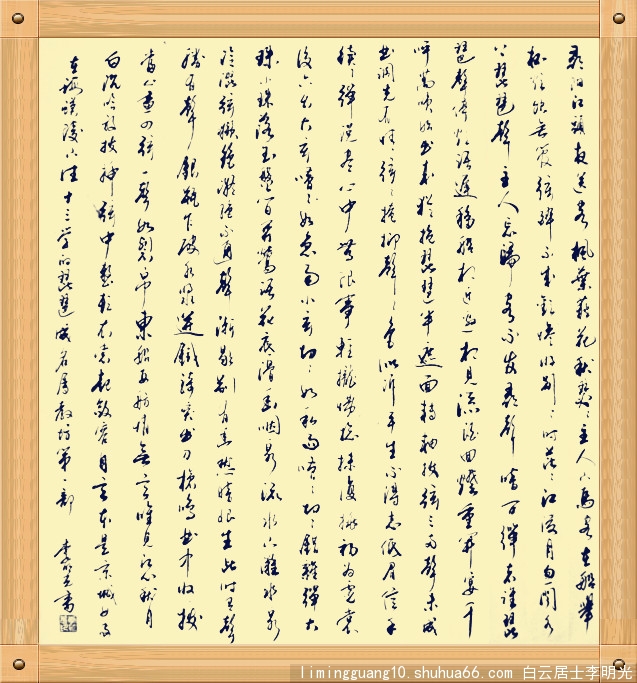 尋陽江頭夜送客楓葉荻花秋瑟瑟主人下馬客在船舉
酒欲飲無管絃醉不成歡慘將別〻時茫〻江浸月忽聞水
上琵琶聲主人忘歸客不發尋聲暗問彈者誰琵
琶聲停欲語遲移船相近邀相見添酒回燈重開宴千
呼萬喚始出來猶抱琵琶半遮面轉軸撥絃三兩聲未成
曲調先有情絃〻掩抑聲〻思似訴平生不得志低眉信手
續〻彈說盡心中無限事輕攏慢撚抹復挑初為霓裳
後六幺大弦嘈〻如急雨小弦切〻如私語嘈〻切〻錯雜彈大
珠小珠落玉盤間關鶯語花底滑幽咽泉流水下灘水泉
冷澀絃凝絕凝絕不通聲漸歇別有幽愁暗恨生此時無聲
勝有聲銀瓶乍破水漿迸鐵騎突出刀槍鳴曲中收撥
當心畫四絃一聲如裂帛東船西舫悄無言唯見江心秋月
白沉吟放撥插絃中整頓衣裳起斂容自言本是京城女家
在蝦蟆陵下住十三學得琵琶成名屬教坊第一部 李明光書
limingguang10.shuhua66.com 白云居士李明光